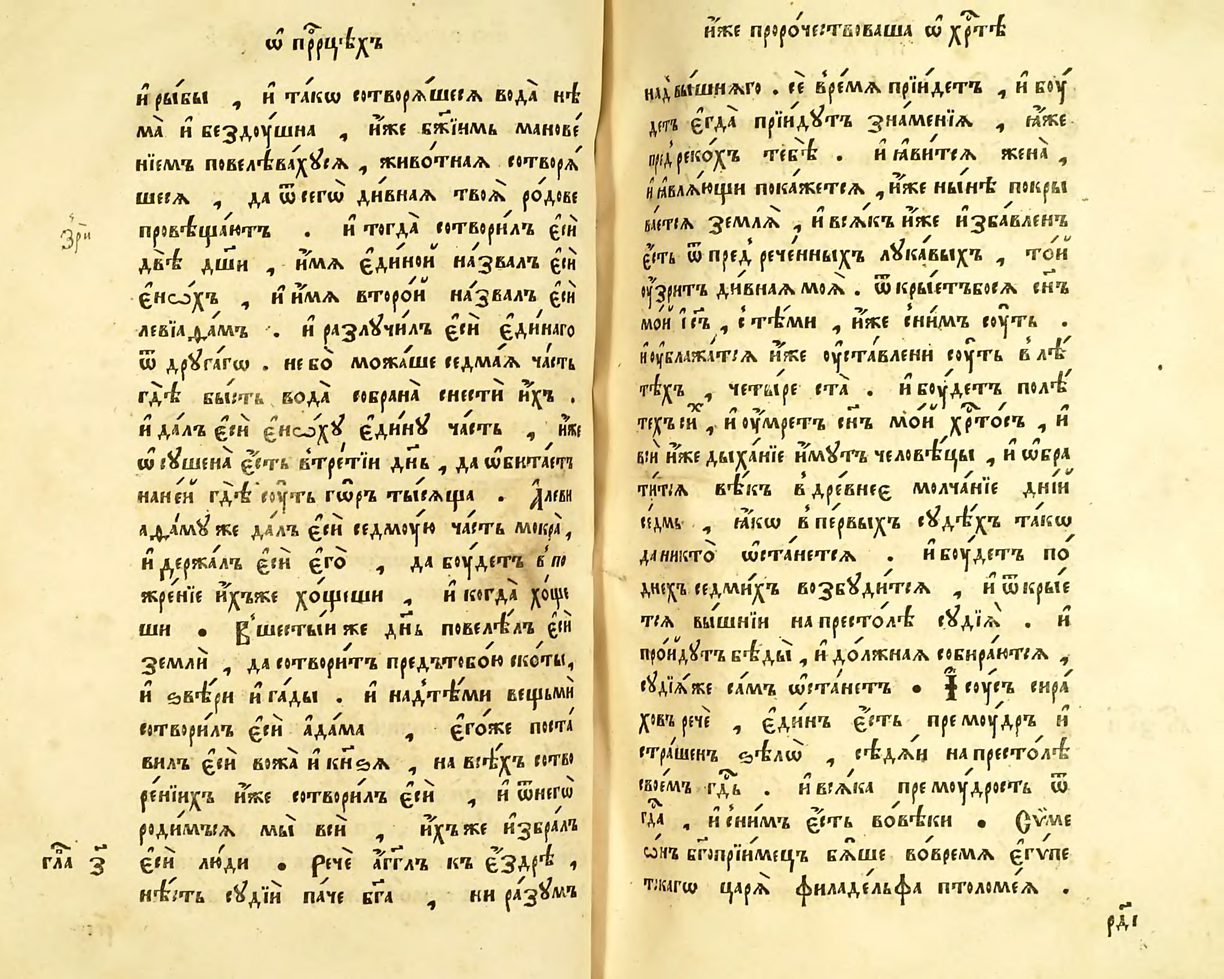 ѡ҆ прⷪ҇рцѣхъ
и҆ ры́бы , и҆ та́кѡ сотворѧ́шесѧ вода̀ нѣ
ма̀ и҆ бездꙋ́шна , и҆́же бж҃їимь манове́
нїемъ повелѣва́хꙋсѧ , живо́тнаѧ сотворѧ́
шесѧ , да ѿ сегѡ̀ ди́внаѧ твоѧ̀ ро́дове
провѣща́ютъ . и҆ тогда̀ сотвори́лъ є҆сѝ
двѣ̀ дш҃и , и҆́мѧ є҆ди́ной на́звалъ є҆сѝ
є҆нѡ́хъ , и҆ и҆́мѧ второ́й на́звалъ є҆сѝ
левїада́мъ . и҆ разлꙋчи́лъ є҆сѝ є҆ди́наго
ѿ дрꙋга́гѡ . не бо̀ можа́ше седма́ѧ ча́сть
гдѣ̀ бы́сть вода̀ собрана̀ снестѝ и҆́хъ .
и҆ да́лъ є҆сѝ є҆нѡ́хꙋ є҆ди́нꙋ ча́сть , и҆́же
ѡ҆сꙋшена̀ є҆́сть в тре́тїи дн҃ь , да ѡ҆бита́етъ
на не́й гдѣ̀ сꙋ́ть го́ръ ты́сѧща . А҆ леви
ада́мꙋ же да́лъ є҆сѝ седмꙋ́ю ча́сть мокра̀,
и҆ держа́лъ є҆сѝ є҆го̀ , да бꙋ́детъ в по
жре́нїе и҆́хъже хо́щеши , и҆ когда̀ хо́ще
ши . В шесты́и же дн҃ь повелѣ́лъ є҆сѝ
землѝ , да сотвори́тъ предъ тобо́ю ско́ты,
и҆ ѕвѣ́ри и҆ га́ды . и҆ над̾ тѣ́ми вещьмѝ
сотвори́лъ є҆сѝ а҆да́ма , є҆го́же поста́
вилъ є҆сѝ вожа̀ и҆ кн҃ѕѧ , на всѣ́хъ сотво
ре́нїихъ и҆́же сотвори́лъ є҆сѝ , и҆ ѿ негѡ̀
роди́мъсѧ мы̀ всѝ , и҆́хъже и҆збра́лъ
є҆сѝ лю́ди . Речѐ а҆́гг҃лъ къ є҆́здрѣ ,
нѣ́сть сꙋдїѝ па́че бг҃а , ни ра́зꙋмъ
зри́
гла҃ з҃
и҆́же проро́чествоваша ѡ҆ хрⷭ҇тѣ̀
над̾ вы́шнѧго . сѐ вре́мѧ прїи́детъ , и҆ бꙋ́
детъ є҆гда̀ прїи́дꙋтъ зна́менїѧ , ꙗ҆́же
пред̾реко́хъ тебѣ̀ . и҆ ꙗ҆ви́тсѧ жена̀ ,
и҆ ꙗ҆влѧ́ющи пока́жетсѧ , и҆́же ны́нѣ покры
ва́етсѧ землѧ̀ , и҆ всѧ́къ и҆́же и҆зба́вленъ
є҆́сть ѿ пред̾рече́нныхъ лꙋка́выхъ , то́й
ᲂу҆́зритъ ди́внаѧ моѧ̀ . ѿкры́етъбосѧ сн҃ъ
мо́й і҆с҃ъ , с тѣ́ми , и҆́же с ни́мъ сꙋ́ть .
и҆ ᲂу҆блажа́тсѧ и҆́же ᲂу҆ста́влени сꙋ́ть в лѣ́
тѣхъ , четы́ре ста̀ . и҆ бꙋ́детъ по лѣ́
техъ си́хъ , и҆ ᲂу҆́мретъ сн҃ъ мо́й хрⷭ҇то́съ , и҆
всѝ и҆́же дыха́нїе и҆́мꙋтъ человѣ́цы , и҆ ѡ҆бра
ти́тсѧ вѣ́къ в дре́внее молча́нїе дні́й
се́дмь , ꙗ҆́кѡ в пе́рвыхъ сꙋдѣ́хъ та́кѡ
да никто̀ ѡ҆ста́нетсѧ . и҆ бꙋ́детъ по́
днехъ седми́хъ возбꙋ́дитсѧ , и҆ ѿкры́е
тсѧ вы́шнїи на престо́лѣ сꙋдїѧ̀ . и҆
про́йдꙋтъ бѣ́ды , и҆ до́лжнаѧ собира́ютсѧ ,
сꙋдїѧ́же са́мъ ѡ҆ста́нетъ . І҆сꙋ́съ сира́
ховъ речѐ , є҆ди́нъ є҆́сть премꙋ́дръ и҆
стра́шенъ ѕѣ́лѡ , сѣдѧ́и на престо́лѣ
свое́мъ гдⷭ҇ь . и҆ всѧ́ка премꙋ́дрость ѿ
гдⷭ҇а , и҆ с ни́мъ є҆́сть во вѣ́ки . Сѷ́ме
ѡ́нъ бг҃опрїи́мецъ бѧ́ше во вре́мѧ є҆гѵ́пе
тскагѡ царѧ̀ філаде́льфа птоломе́ѧ .
рд҃і